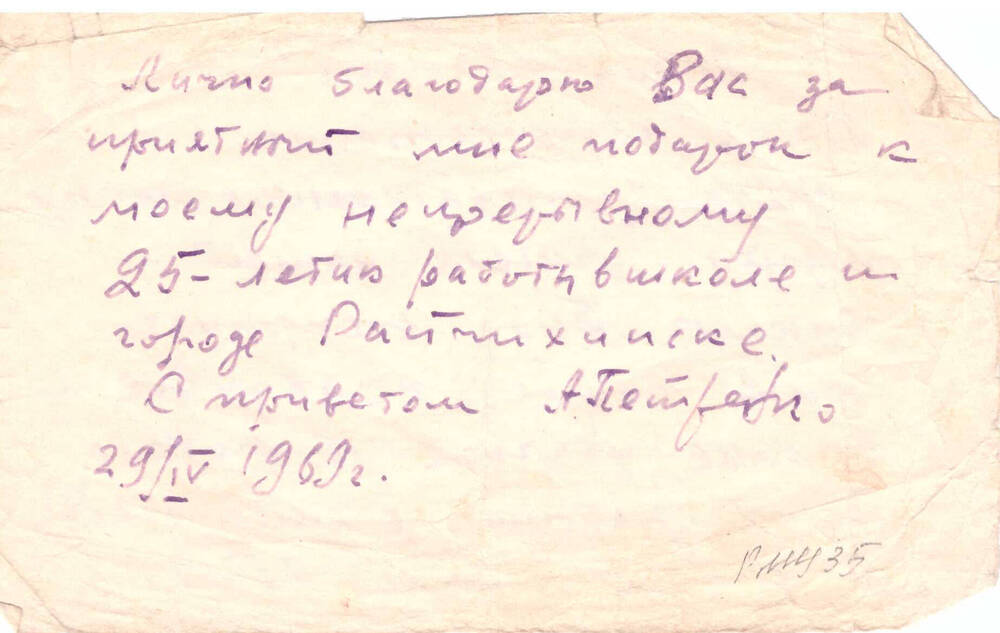 Лично благодарю Вас за
приятный мне подарок к
моему непрерывному
25-летию работы в школе и
городе Райчихинске.
С приветом А.Петренко
29/IV 1969г.